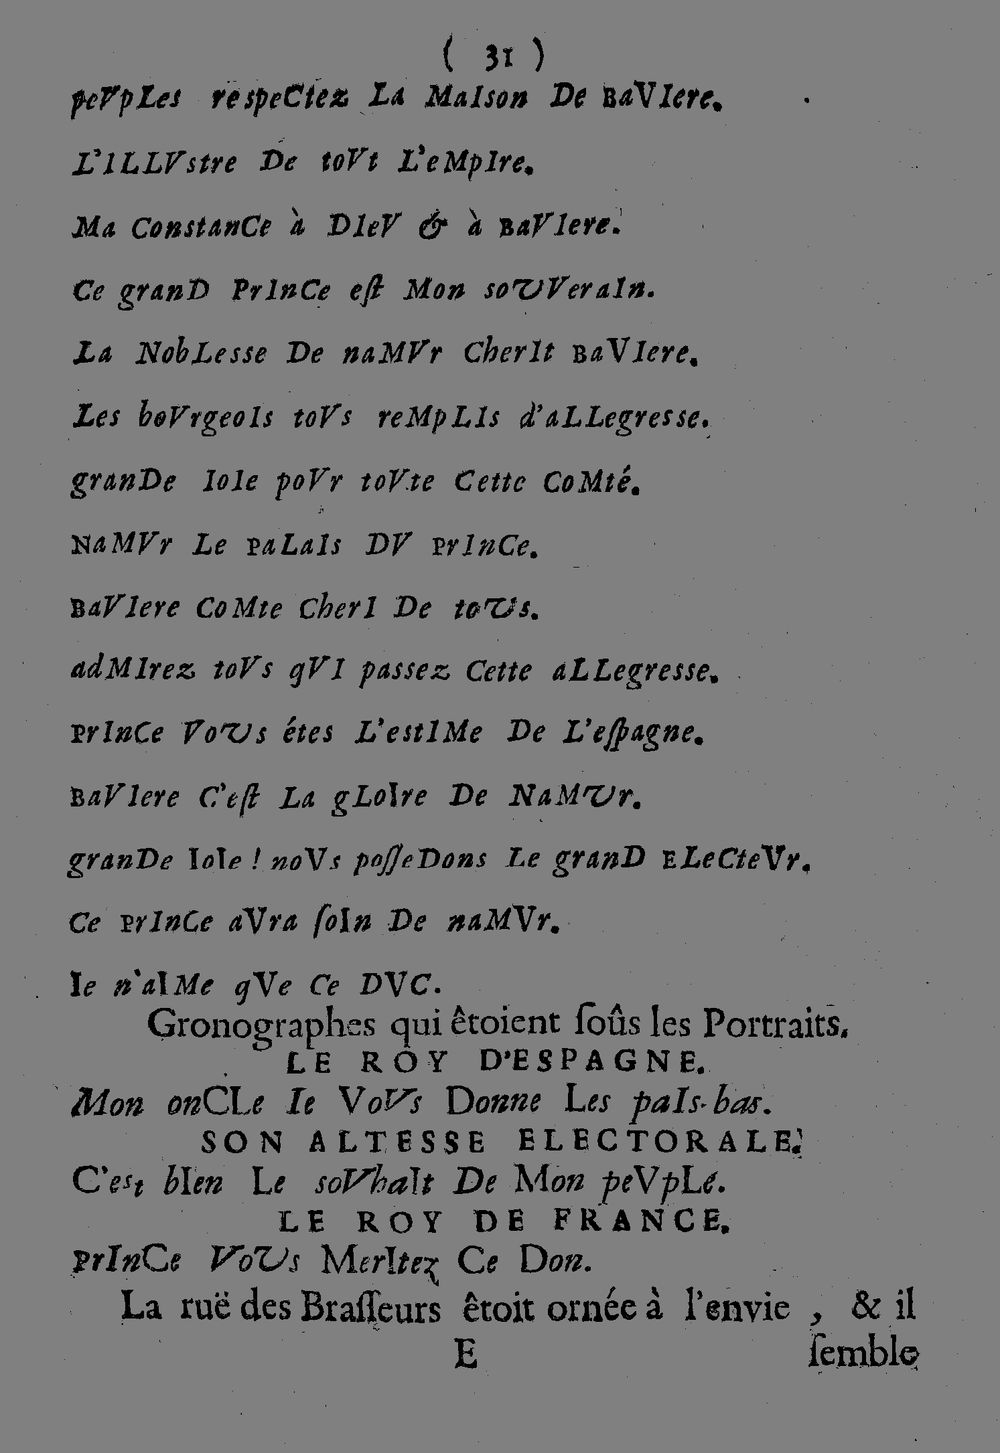 ( 31 )
peVpLes respeCtez La MaIson De BaVIere.
L'ILLVstre De toVt L'eMpIre.
Ma ConstanCe à DIeV & à BaVIere.
Ce granD PrInCe eſt Mon soUVeraIn.
La NobLesse De naMVr CherIt BaVIere.
Les boVrgeoIs toVs reMpLIs d'aLLegresse.
granDe IoIe poVr toVte Cette CoMté.
NaMVr Le PaLaIs DV PrInCe.
BaVIere CoMte CherI De toUs.
adMIrez toVs qVI passez Cette aLLegresse.
PrInCe VoUs étes L'estIMe De L'eſpagne.
BaVIere C'eſt La gLoIre De NaMUr.
granDe IoIe ! noVs poſſeDons Le granD ELeCteVr.
Ce PrInCe aVra ſoIn De naMVr.
Ie n'aIMe qVe Ce DVC.
Gronographes qui êtoient ſoûs les Portraits.
LE ROY D'ESPAGNE.
Mon onCLe Ie VoVs Donne Les paIs-bas.
SON ALTESSE ELECTORALE.
C'est bIen Le soVhaIt De Mon peVpLé.
LE ROY DE FRANCE.
PrInCe VoUs MerItez Ce Don.
La ruë des Braſſeurs êtoit ornée à l'envie , & il
E ſemble